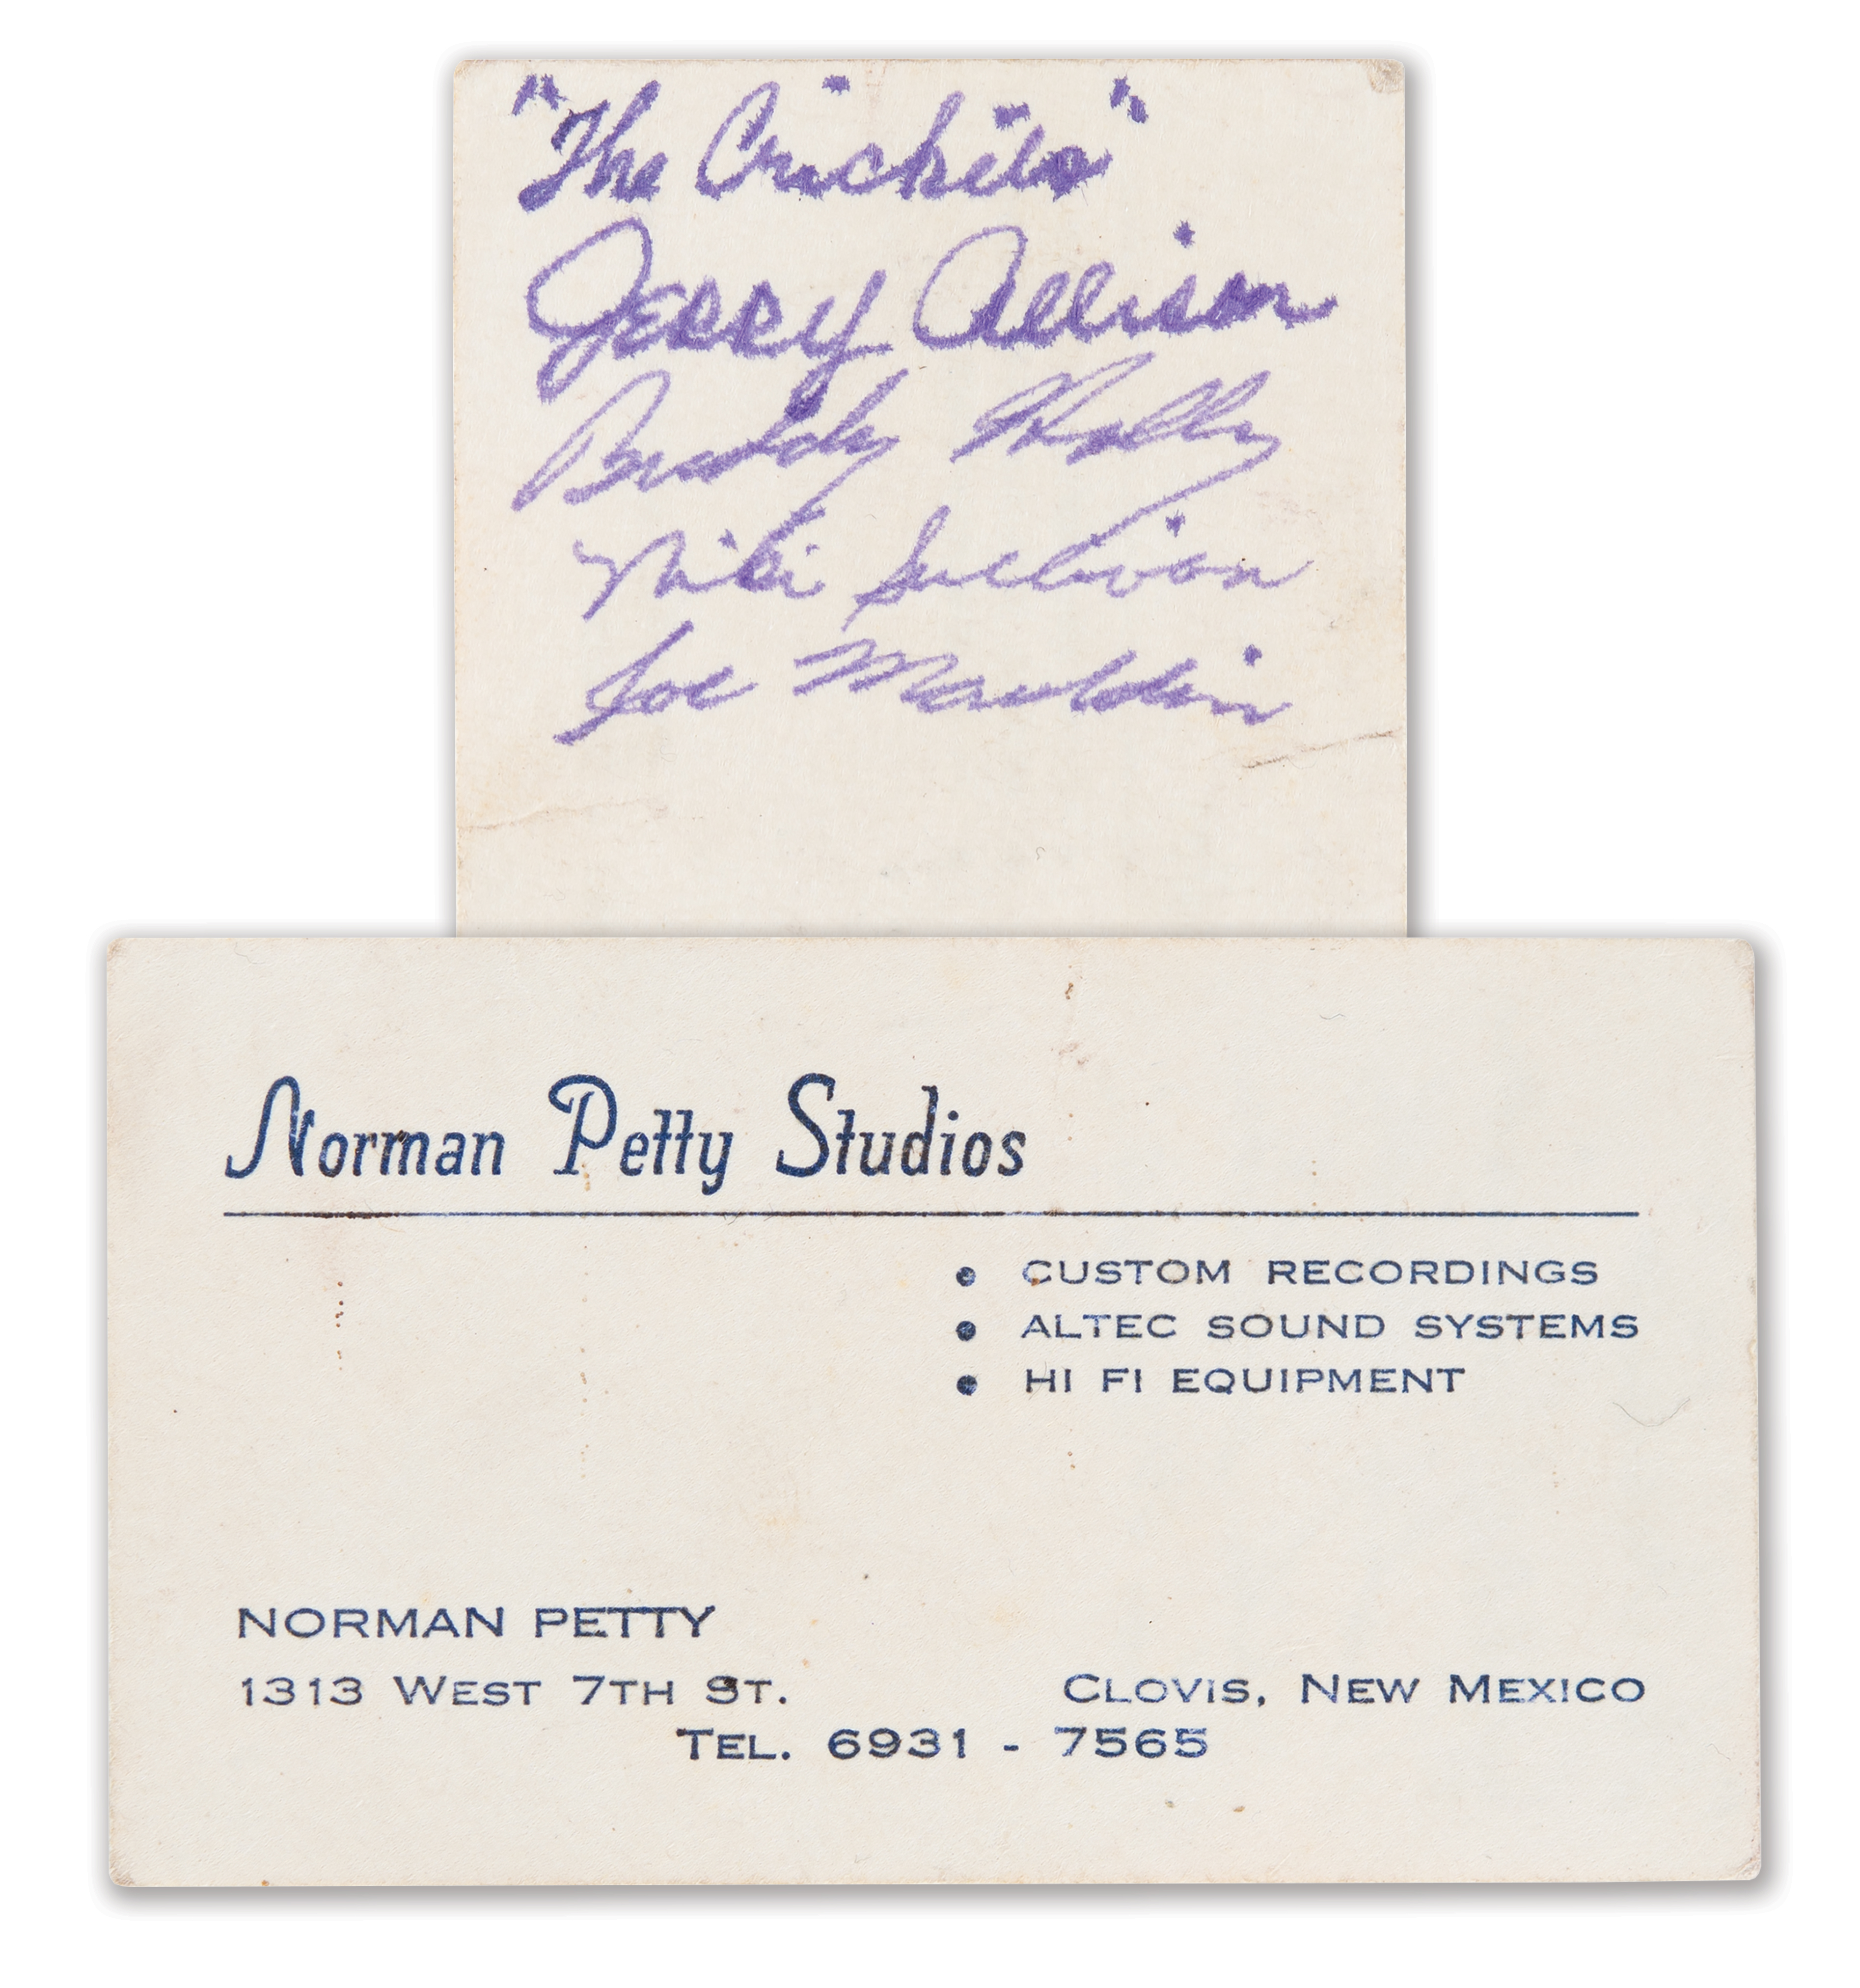 "The Crickets"
Jerry Allison
Buddy Holly
Niki Sullivan
Joe Mauldin
Norman Petty Studios
• CUSTOM RECORDINGS
• ALTEC SOUND SYSTEMS
• HI FI EQUIPMENT
NORMAN PETTY
1313 WEST 7TH ST. CLOVIS, NEW MEXICO
TEL. 6931 - 7565